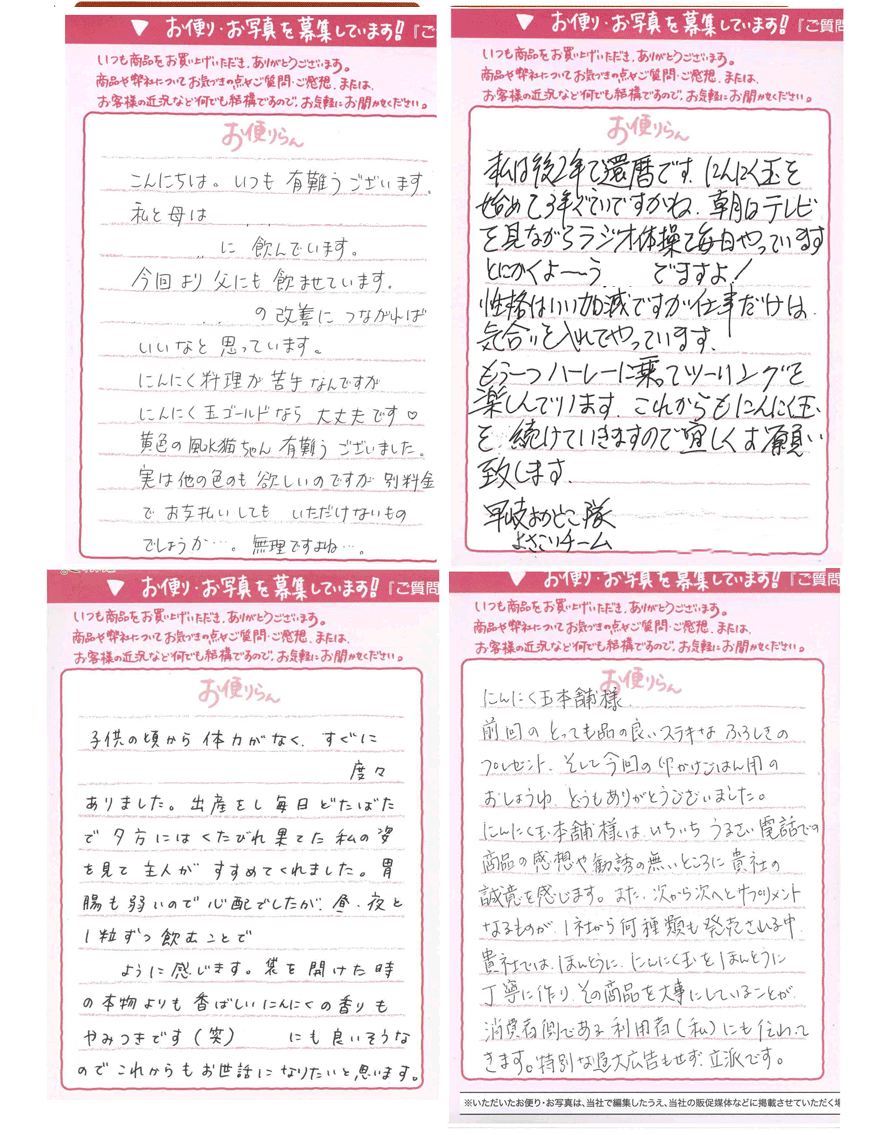 ▼ お便り・お写真を募集しています!!『ご
いつも商品をお買い上げいただき、ありがとうございます。
商品や弊社についてお気づきの点やご質問・ご感想、または、
お客様の近況など何でも結構ですので、お気軽にお聞かせください。
お便りらん
こんにちは。いつも有難うございます。
私と母は
に飲んでいます。
今回より父にも飲ませています。
の改善につながれば
いいなと思っています。
にんにく料理が苦手なんですが
にんにく玉ゴールドなら大丈夫です♡
黄色の風水猫ちゃん有難うございました。
実は他の色のも欲しいのですが別料金
でお支払いしてもいただけないもの
でしょうか…。無理ですよね…。
▼ お便り・お写真を募集しています!!『ご質問
いつも商品をお買い上げいただき、ありがとうございます。
商品や弊社についてお気づきの点やご質問・ご感想、または、
お客様の近況など何でも結構ですので、お気軽にお聞かせください。
お便りらん
私は後2年で還暦です。にんにく玉を
始めて3年ぐらいですかね、朝はテレビ
を見ながらラジオ体操で毎日やっています
とにかくよーう でますよ!
性格はいい加減ですが仕事だけは
気合いを入れてやっています。
もう一つハーレーに乗ってツーリングを
楽しんでいます。これからもにんにく玉
を続けていきますので宜しくお願い
致します。
早岐おやじ隊
よさこいチーム
▼ お便り・お写真を募集しています!!『ご質問
いつも商品をお買い上げいただき、ありがとうございます。
商品や弊社についてお気づきの点やご質問・ご感想、または、
お客様の近況など何でも結構ですので、お気軽にお聞かせください。
お便りらん
子供の頃から体力がなく、すぐに
度々
ありました。出産をし毎日どたばた
で夕方にはくたびれ果てた私の姿
を見て主人がすすめてくれました。胃
腸も弱いので心配でしたが、昼・夜と
1粒ずつ飲むことで
ように感じます。袋を開けた時
の本物よりも香ばしいにんにくの香りも
やみつきです(笑) にも良いそうな
のでこれからもお世話になりたいと思います。
▼ お便り・お写真を募集しています!!『ご質問
いつも商品をお買い上げいただき、ありがとうございます。
商品や弊社についてお気づきの点やご質問・ご感想、または、
お客様の近況など何でも結構ですので、お気軽にお聞かせください。
お便りらん
にんにく玉本舗様
前回のとっても品の良いステキなふろしきの
プレゼント、そして今回の卵かけごはん用の
おしょうゆ、どうもありがとうございました。
にんにく玉本舗様は、いちいちうるさい電話での
商品の感想や勧誘の無いところに貴社の
誠意を感じます。また、次から次へとサプリメント
なるものが、1社から何種類も発売される中、
貴社では、ほんとうに、にんにく玉をほんとうに
丁寧に作り、その商品を大事にしていることが、
消費者側である利用者(私)にも伝わって
きます。特別な過大広告もせず、立派です。
※いただいたお便り・お写真は、当社で編集したうえ、当社の販促媒体などに掲載させていただく場